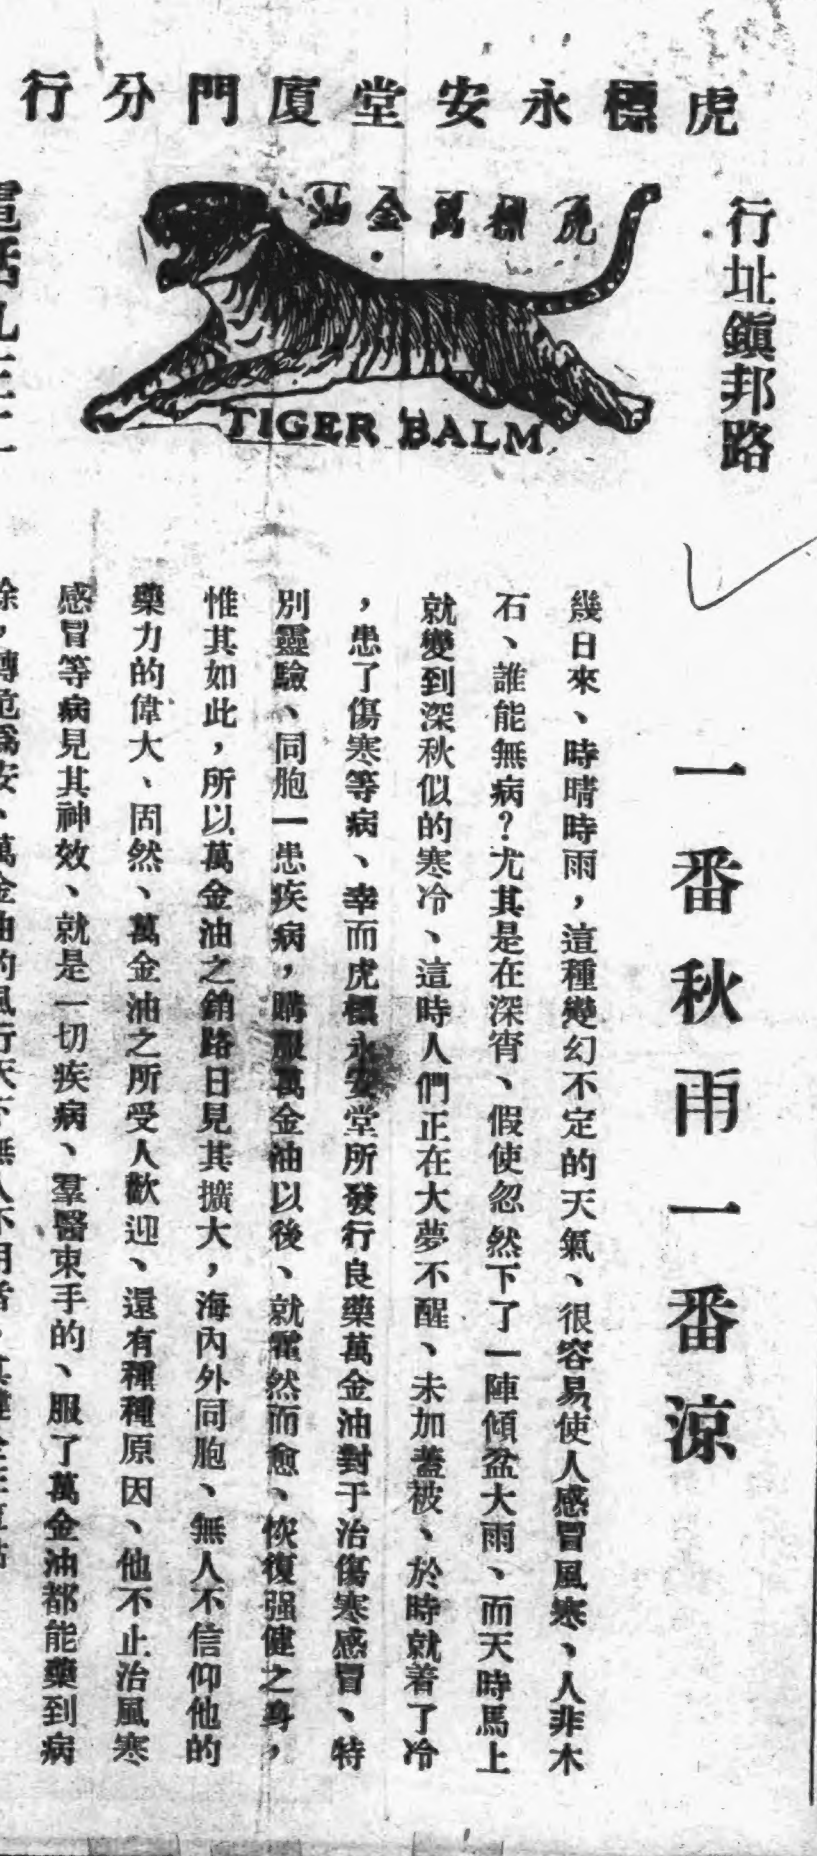 虎標永安堂廈門分行
行址鎭邦路
虎標萬金油
TIGER BALM
一番秋雨一番涼
幾日來、時晴時雨，這種變幻不定的天氣、很容易使人感冒風寒、人非木
石、誰能無病？尤其是在深宵、假使忽然下了一陣傾盆大雨、而天時馬上
就變到深秋似的寒冷、這時人們正在大夢不醒、未加蓋被、於時就着了冷
，患了傷寒等病、幸而虎標永安堂所發行良藥萬金油對于治傷寒感冒、特
別靈驗、同胞一患疾病，購服萬金油以後、就霍然而愈、恢復强健之身，
惟其如此，所以萬金油之銷路日見其擴大，海內外同胞、無人不信仰他的
藥力的偉大、固然、萬金油之所受人歡迎、還有種種原因、他不止治風寒
感冒等病見其神效、就是一切疾病、羣醫束手的、服了萬金油都能藥到病